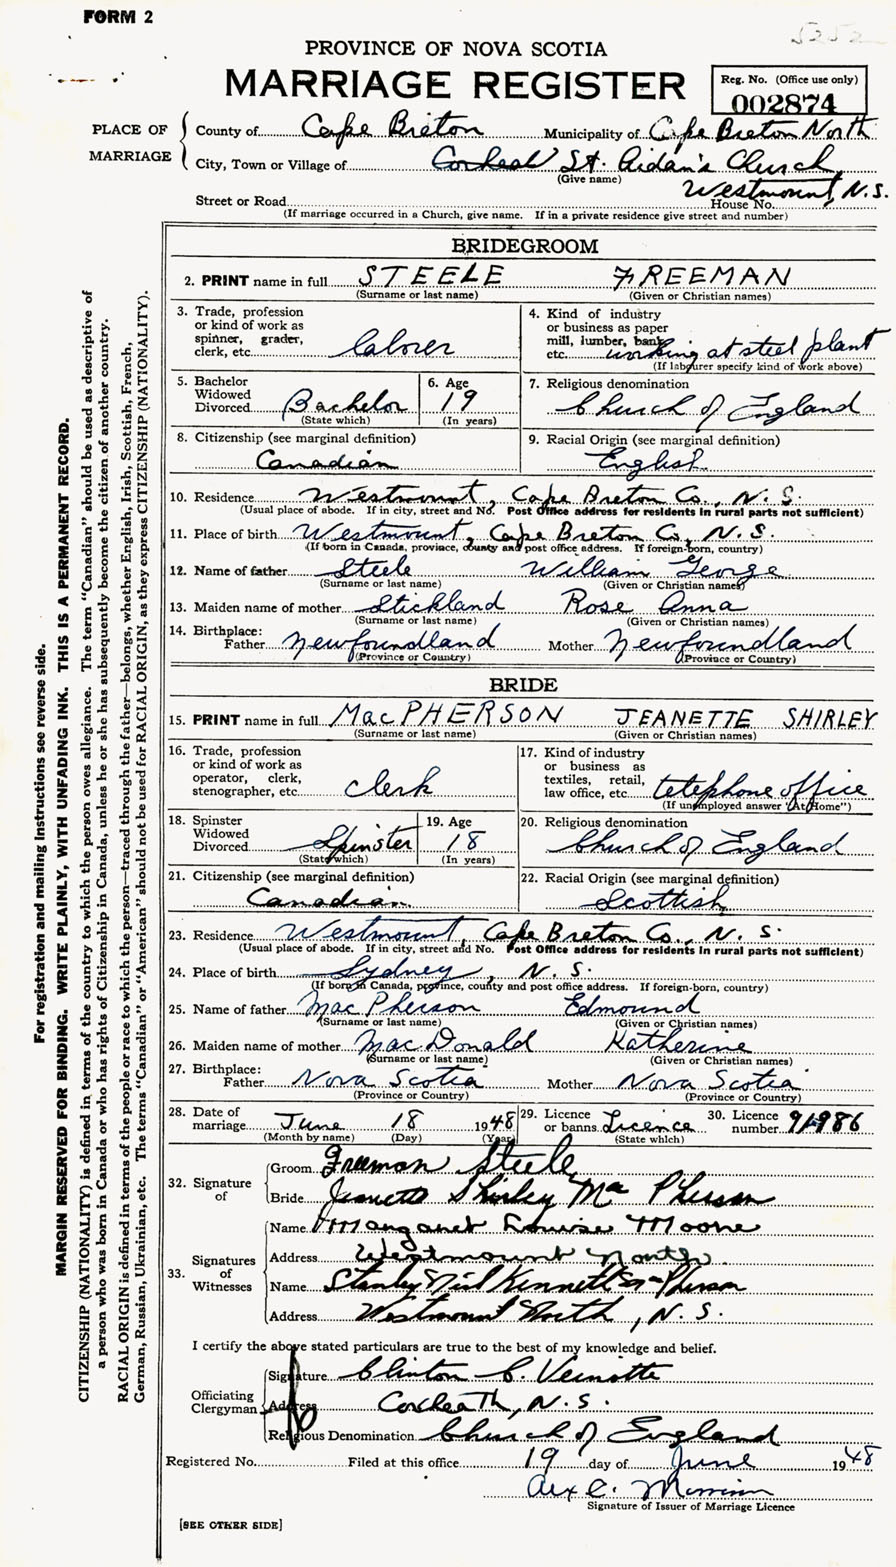 FORM 2
5252
PROVINCE OF NOVA SCOTIA
MARRIAGE REGISTER
Reg. No. (Office use only)
002874
PLACE OF MARRIAGE
County of Cape Breton Municipality of Cape Breton North
City, Town or Village of Coxheath St. Aidan's Church,
(Give name)
Westmount, N.S.
Street or Road House No.
(If marriage occurred in a Church, give name. If in a private residence give street and number)
BRIDEGROOM
2. PRINT name in full STEELE FREEMAN
(Surname or last name) (Given or Christian names)
3. Trade, profession or kind of work as spinner, grader, clerk, etc. laborer
4. Kind of industry or business as paper mill, lumber, bank, etc. working at steel plant
(If labourer specify kind of work above)
5. Bachelor Widowed Divorced Bachelor
(State which)
6. Age 19
(In years)
7. Religious denomination
Church of England
8. Citizenship (see marginal definition)
Canadian
9. Racial Origin (see marginal definition)
English
10. Residence Westmount, Cape Breton Co., N. S.
(Usual place of abode. If in city, street and No. Post Office address for residents in rural parts not sufficient)
11. Place of birth Westmount, Cape Breton Co, N. S.
(If born in Canada, province, county and post office address. If foreign-born, country)
12. Name of father Steele William George
(Surname or last name) (Given or Christian names)
13. Maiden name of mother Stickland Rose Anna
(Surname or last name) (Given or Christian names)
14. Birthplace: Father Newfoundland Mother Newfoundland
(Province or Country) (Province or Country)
BRIDE
15. PRINT name in full MacPHERSON JEANETTE SHIRLEY
(Surname or last name) (Given or Christian names)
16. Trade, profession or kind of work as operator, clerk, stenographer, etc. clerk
17. Kind of industry or business as textiles, retail, law office, etc. telephone office
(If unemployed answer "At Home")
18. Spinster Widowed Divorced Spinster
(State which)
19. Age 18
(In years)
20. Religious denomination
Church of England
21. Citizenship (see marginal definition)
Canadian
22. Racial Origin (see marginal definition)
Scottish
23. Residence Westmount, Cape Breton Co., N. S.
(Usual place of abode. If in city, street and No. Post Office address for residents in rural parts not sufficient)
24. Place of birth Sydney, N. S.
(If born in Canada, province, county and post office address. If foreign-born, country)
25. Name of father MacPherson Edmound
(Surname or last name) (Given or Christian names)
26. Maiden name of mother MacDonald Katherine
(Surname or last name) (Given or Christian names)
27. Birthplace: Father Nova Scotia Mother Nova Scotia
(Province or Country) (Province or Country)
28. Date of marriage June 18 1948
(Month by name) (Day) (Year)
29. Licence or banns Licence
(State which)
30. Licence number
32. Signature of
Groom Freeman Steele
Bride Jeanette Shirley MacPherson
33. Signatures of Witnesses
Name Margaret Louise Moore
Address Westmount North
Name Stanley Neil Kenneth McPherson
Address Westmount North, N. S.
I certify the above stated particulars are true to the best of my knowledge and belief.
Officiating Clergyman
Signature Clinton C. Veinotte
Address Coxheath, N.S.
Religious Denomination Church of England
Registered No. Filed at this office 19 day of June 1948
Alex C.
Signature of Issuer of Marriage Licence
[SEE OTHER SIDE]
For registration and mailing instructions see reverse side.
MARGIN RESERVED FOR BINDING. WRITE PLAINLY, WITH UNFADING INK. THIS IS A PERMANENT RECORD.
CITIZENSHIP (NATIONALITY) is defined in terms of the country to which the person owes allegiance. The term "Canadian" should be used as descriptive of
a person who was born in Canada or who has rights of Citizenship in Canada, unless he or she has subsequently become the citizen of another country.
RACIAL ORIGIN is defined in terms of the people or race to which the person—traced through the father—belongs, whether English, Irish, Scottish, French,
German, Russian, Ukrainian, etc. The terms "Canadian" or "American" should not be used for RACIAL ORIGIN, as they express CITIZENSHIP (NATIONALITY).